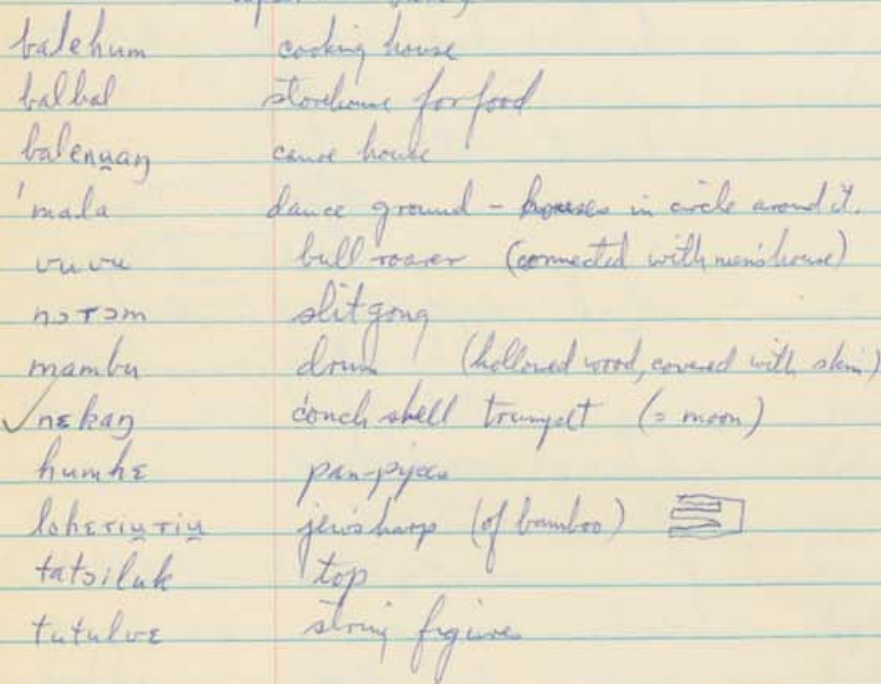 balehum cooking house
balbal storehouse for food
balenu̯aŋ canoe house
'mala dance ground - houses in circle around it.
vuvu bull roarer (connected with men's house)
nɔτɔm slit gong
mambu drum (hollowed wood, covered with skin)
✓nɛkaŋ conch shell trumpet (= moon)
humhɛ pan-pipes
lohɛτiu̯τiu̯ jew's harp (of bamboo)
tatsiluk top
tutulvɛ string figures